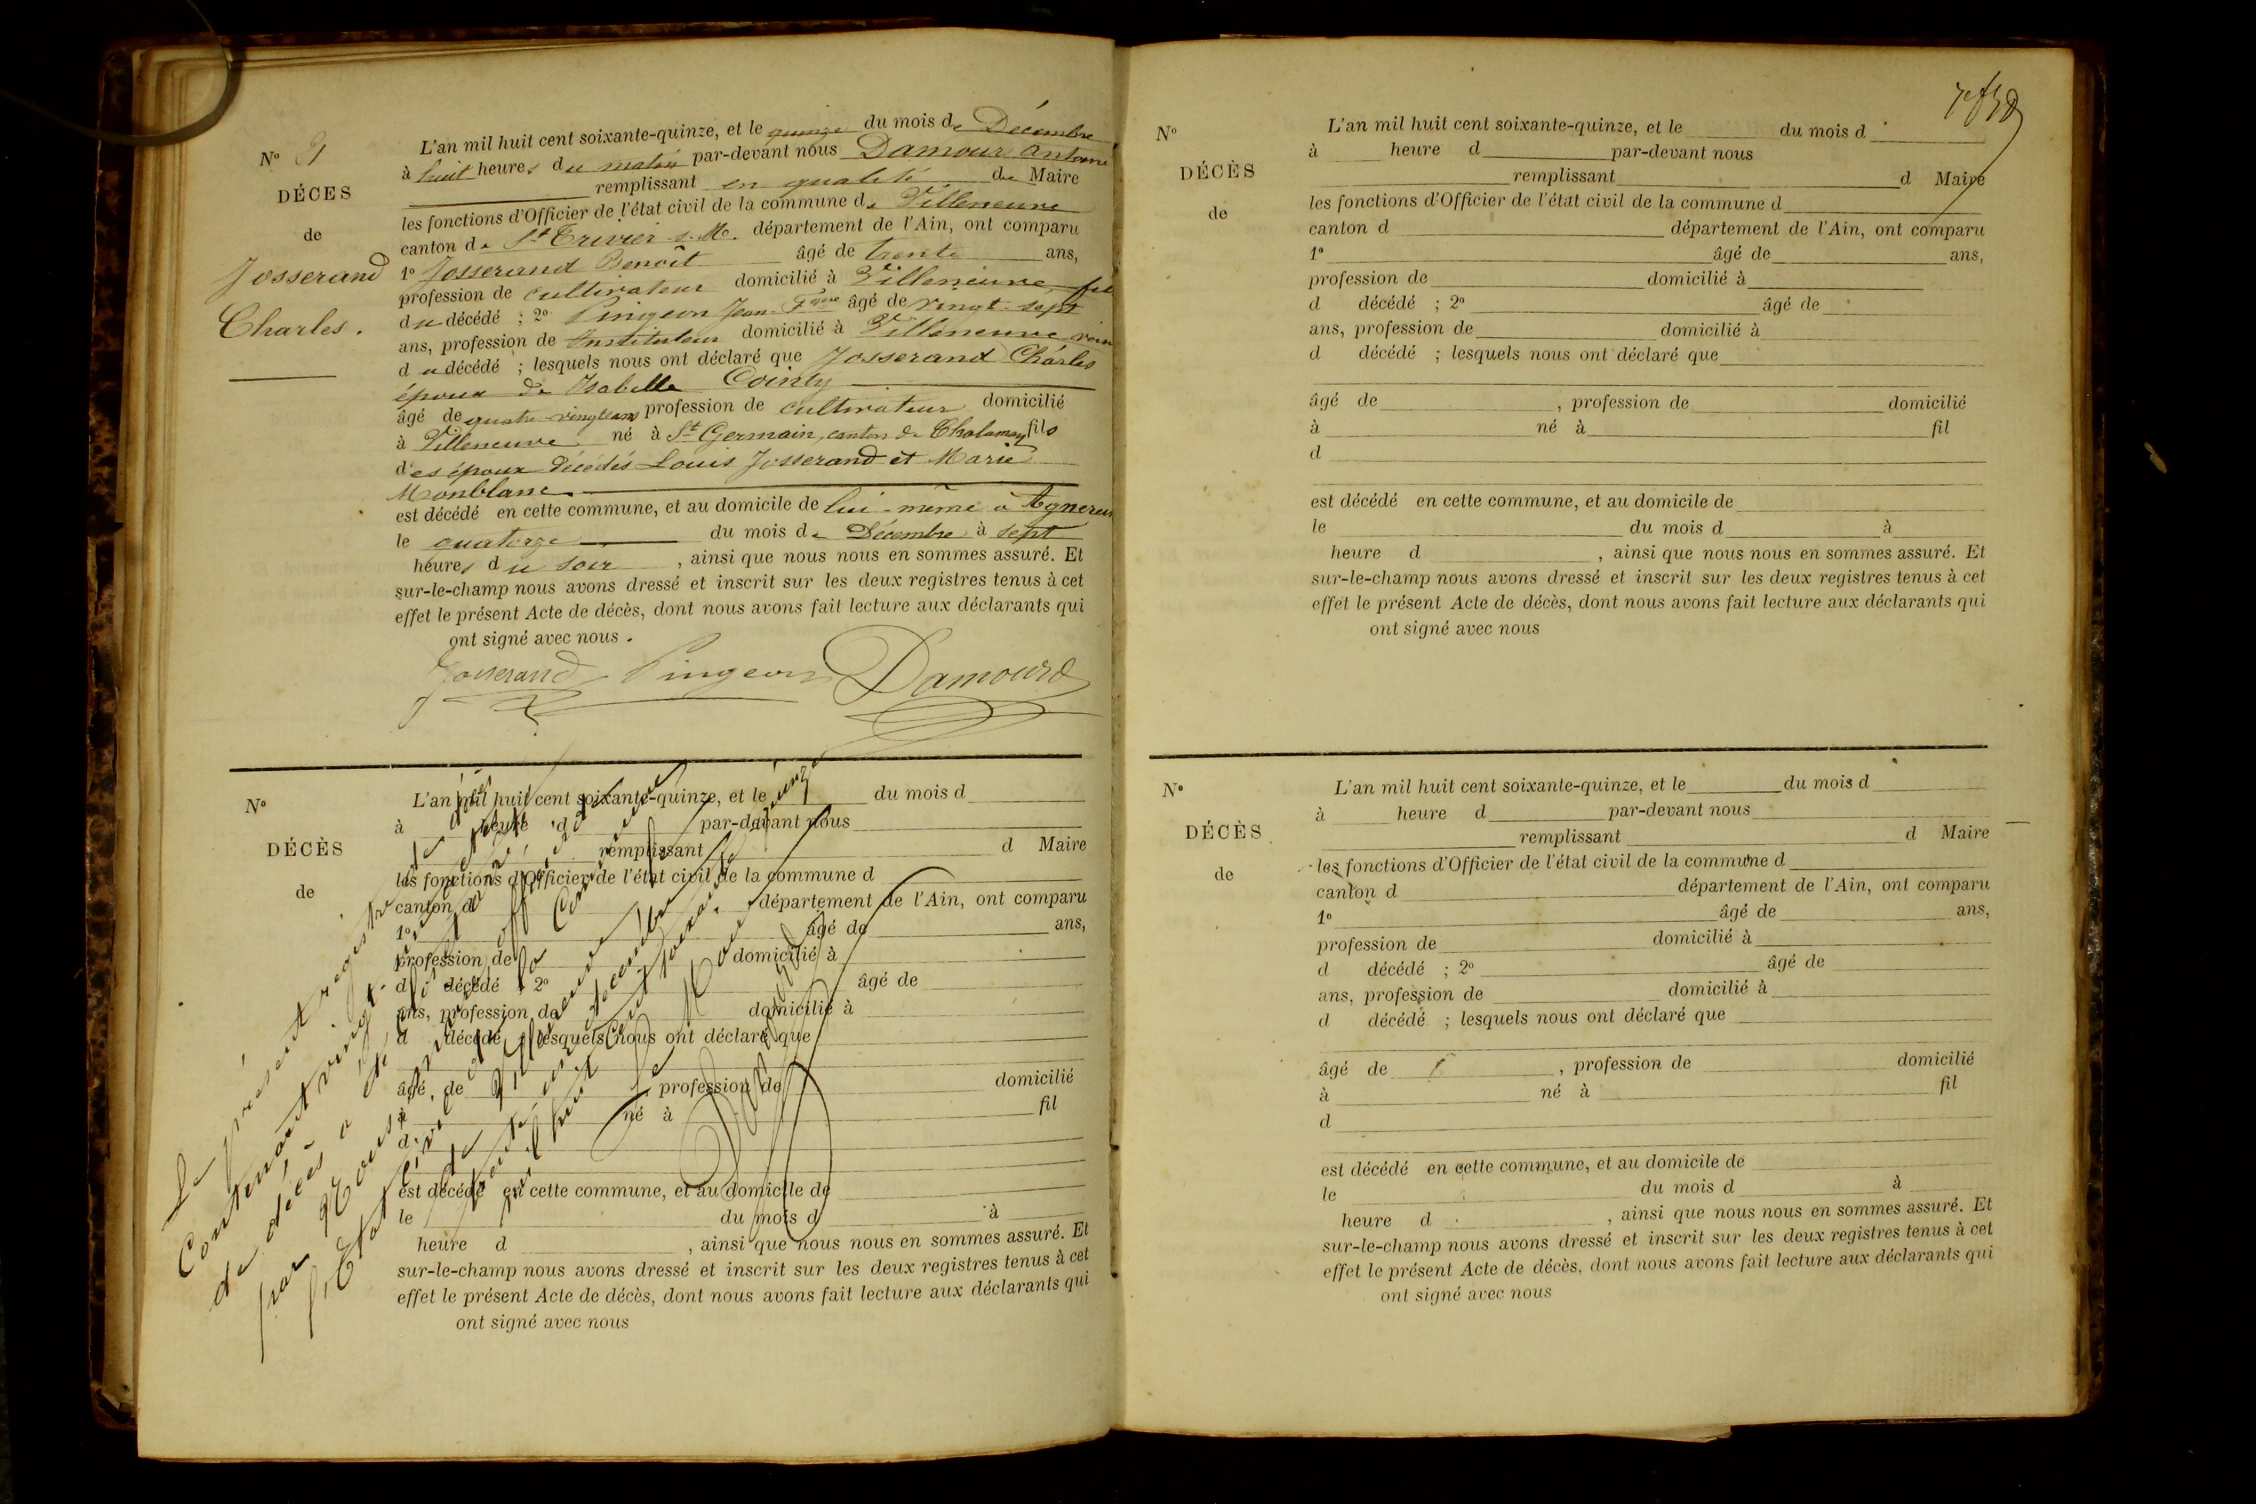 Nº 9
DÉCES
de
Josserand
Charles.
L'an mil huit cent soixante-quinze, et le quinze du mois de Décembre
à huit heures du matin par-devant nous Damour Antoine
remplissant en qualité de Maire
les fonctions d'Officier de l'état civil de la commune de Villeneuve
canton de St Trivier s. M. département de l'Ain, ont comparu
1º Josserand Benoit âgé de trente ans,
profession de cultivateur domicilié à Villeneuve, fils
du décédé ; 2º Pingeon Jean-Fçois âgé de vingt-sept
ans, profession de Instituteur domicilié à Villeneuve voisin
du décédé ; lesquels nous ont déclaré que Josserand Charles
époux de Isabelle
âgé de quatre-vingt ans profession de cultivateur domicilié
à Villeneuve né à St Germain, canton de Chalamon, fils
des époux décédés Louis Josserand et Marie
Monblanc
est décédé en cette commune, et au domicile de lui-même à Agnereins
le quatorze du mois de Décembre à sept
heures du soir, ainsi que nous nous en sommes assuré. Et
sur-le-champ nous avons dressé et inscrit sur les deux registres tenus à cet
effet le présent Acte de décès, dont nous avons fait lecture aux déclarants qui
ont signé avec nous.
Josserand Pingeon Damour
Nº
DÉCÈS
de
L'an mil huit cent soixante-quinze, et le du mois d
à heure d par-devant nous
remplissant d Maire
les fonctions d'Officier de l'état civil de la commune d
canton d département de l'Ain, ont comparu
1º âgé de ans,
profession de domicilié à
d décédé ; 2º âgé de
ans, profession de domicilié à
d décédé ; lesquels nous ont déclaré que
âgé de, profession de domicilié
à né à fil
d
est décédé en cette commune, et au domicile de
le du mois d à
heure d , ainsi que nous nous en sommes assuré. Et
sur-le-champ nous avons dressé et inscrit sur les deux registres tenus à cet
effet le présent Acte de décès, dont nous avons fait lecture aux déclarants qui
ont signé avec nous
Le présent registre
Contenant vingt-
de décès a été
par Nous,
l'Etat civil de la Commune
de Villeneuve
trente-un décembre
mil huit cent soixante quinze
Le Maire
Damour
Nº
DÉCÈS
de
L'an mil huit cent soixante-quinze, et le du mois d
à heure d par-devant nous
remplissant d Maire
les fonctions d'Officier de l'état civil de la commune d
canton d département de l'Ain, ont comparu
1º âgé de ans,
profession de domicilié à
d décédé ; 2º âgé de
ans, profession de domicilié à
d décédé ; lesquels nous ont déclaré que
âgé de , profession de domicilié
à né à fil
d
est décédé en cette commune, et au domicile de
le du mois d à
heure d , ainsi que nous nous en sommes assuré. Et
sur-le-champ nous avons dressé et inscrit sur les deux registres tenus à cet
effet le présent Acte de décès, dont nous avons fait lecture aux déclarants qui
ont signé avec nous
Nº
DÉCÈS
de
L'an mil huit cent soixante-quinze, et le du mois d
à heure d par-devant nous
remplissant d Maire
les fonctions d'Officier de l'état civil de la commune d
canton d département de l'Ain, ont comparu
1º âgé de ans,
profession de domicilié à
d décédé ; 2º âgé de
ans, profession de domicilié à
d décédé ; lesquels nous ont déclaré que
âgé de , profession de domicilié
à né à fil
d
est décédé en cette commune, et au domicile de
le du mois d à
heure d , ainsi que nous nous en sommes assuré. Et
sur-le-champ nous avons dressé et inscrit sur les deux registres tenus à cet
effet le présent Acte de décès, dont nous avons fait lecture aux déclarants qui
ont signé avec nous